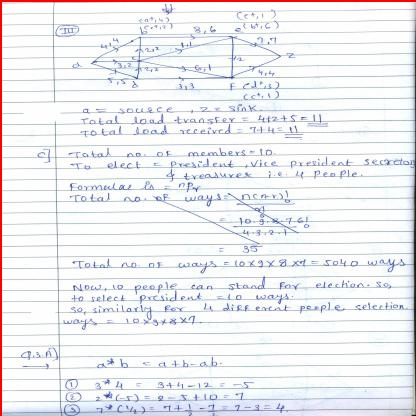 III)
(a+, 4)
(c+, 1)
(b+, 6)
4,4
8,6
7,7
3,2
2,2
1,1
5,5
3,3
4,4
a
b
d
e
F
z
(d+, 3)
(c+, 1)
a = source, z = sink.
Total load transfer = 4+2+5 = 11
Total load received = 7+4 = 11
c] Total no. of members = 10.
To elect = president, vice president secretary
& treasurer i.e. 4 people.
Formulae is = nPr
Total no. of ways = n(n-r)!
r!
= 10.9.8.7.6!
4.3.2.1
= 35
Total no of ways = 10×9×8×7 = 5040 ways
Now, 10 people can stand for election. so,
to select president = 10 ways.
so, similarly for 4 different people selection
ways = 10×9×8×7.
Q.3.A]
a*b = a+b-ab.
① 3*4 = 3+4-12 = -5
② 2*(-5) = 2-5+10 = 7
③ 7*(1/2) = 7+1-7 = 7-3 = 4